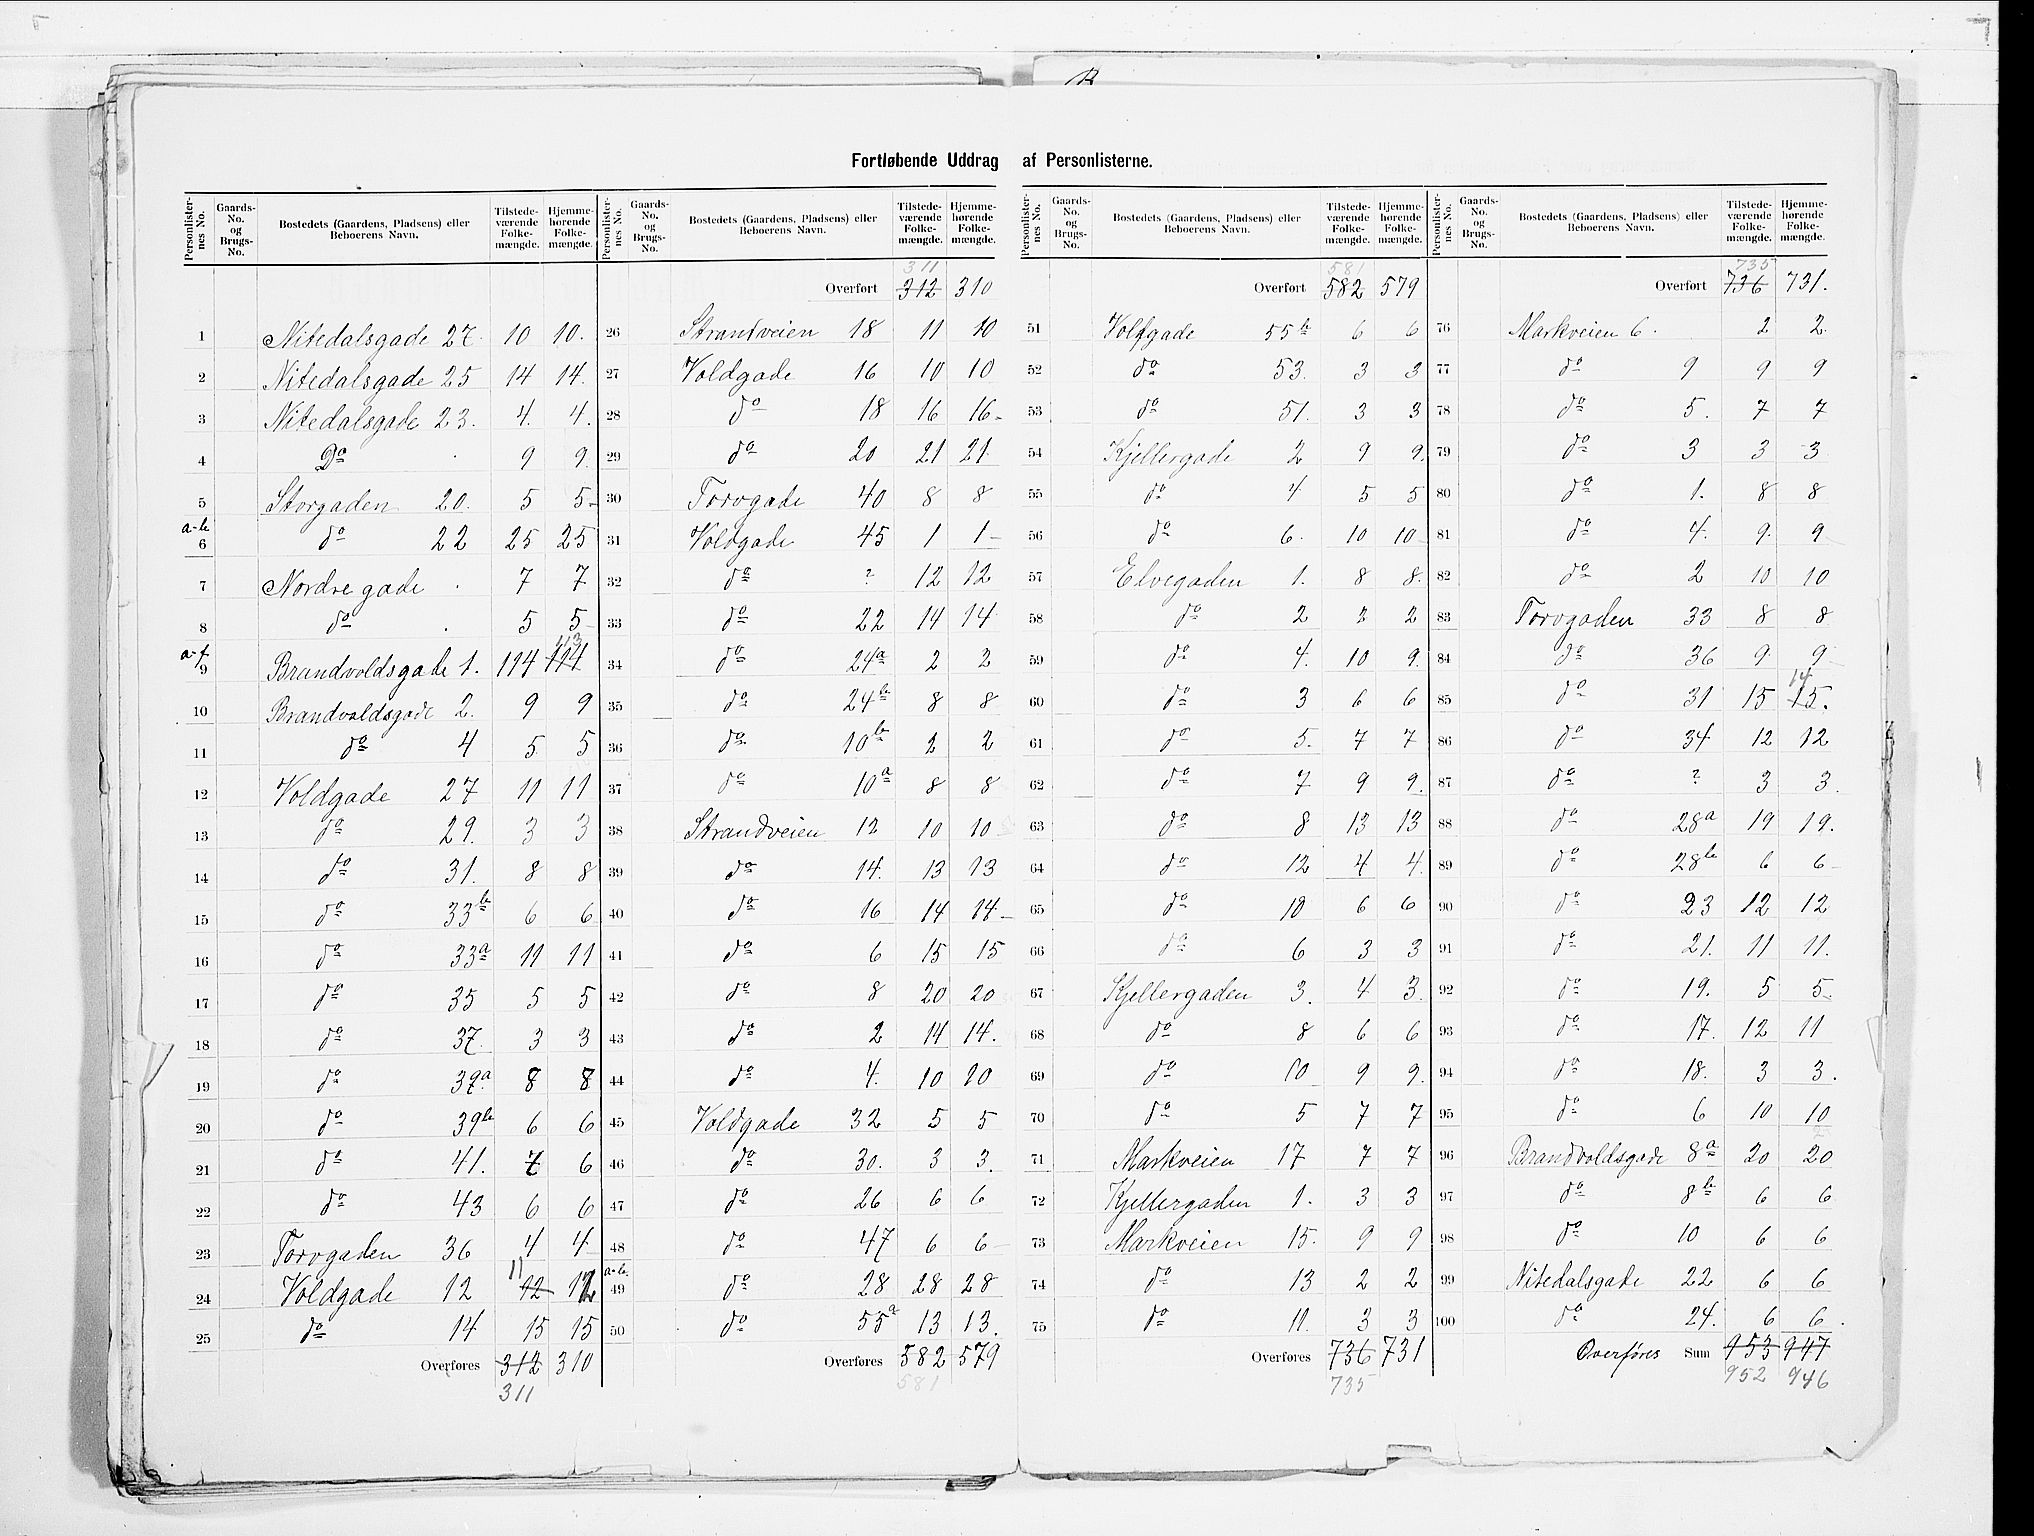 Fortløbende Uddrag af Personlisterne.
Personlisternes No. | Gaards-No. og Brugs-No. | Bostedets (Gaardens, Pladsens) eller Beboerens Navn. | Tilstedeværende Folkemængde. | Hjemmehørende Folkemængde.
1 Nitedalsgade 27. 10 10.
2 Nitedalsgade 25 14 14.
3 Nitedalsgade 23. 4. 4.
4 Do . 9 9.
5 Storgaden 20. 5 5.
a-b 6 do 22 25 25
7 Nordre gade . 7 7
8 do . 5 5
a-f 9 Brandvoldsgade 1. 114 114 113
10 Brandvoldsgade 2. 9 9
11 do 4 5 5
12 Voldgade 27 11 11
13 do 29. 3 3
14 do 31. 8 8
15 do 33b 6 6
16 do 33a 11 11
17 do 35 5 5
18 do 37. 3 3
19 do 39a 8 8
20 do 39b 6 6
21 do 41. 7 6
22 do 43 6 6
23 Torvgaden 36 4 4
24 Voldgade 12 12 11 12
25 do 14 15 15
Overføres 312 310
311
Personlisternes No. | Gaards-No. og Brugs-No. | Bostedets (Gaardens, Pladsens) eller Beboerens Navn. | Tilstedeværende Folkemængde. | Hjemmehørende Folkemængde.
311
Overført 312 310
26 Strandveien 18 11 10
27 Voldgade 16 10 10
28 do 18 16 16
29 do 20 21 21
30 Torvgade 40 8 8
31 Voldgade 45 1 1
32 do ? 12 12
33 do 22 14 14
34 do 24a 2 2
35 do 24b 8 8
36 do 10b 2 2
37 do 10a 8 8
38 Strandveien 12 10 10
39 do 14. 13 13
40 do 16 14 14
41 do 6 15 15
42 do 8 20 20
43 do 2 14 14.
44 do 4. 10 10
45 Voldgade 32 5 5
46 do 30. 3 3.
47 do 26 6 6
48 do 47 6 6
a-b. 49 do 28 28 28
50 do 55a 13 13.
Overføres 582 579
581
Personlisternes No. | Gaards-No. og Brugs-No. | Bostedets (Gaardens, Pladsens) eller Beboerens Navn. | Tilstedeværende Folkemængde. | Hjemmehørende Folkemængde.
581
Overført 582 579
51 Voldgade 55b 6 6
52 do 53. 3 3
53 do 51. 3 3
54 Kjellergade 2 9 9.
55 do 4 5 5
56 do 6. 10 10
57 Elvegaden 1. 8 8.
58 do 2 2 2
59 do 4. 10 9.
60 do 3 6 6
61 do 5. 7 7
62 do 7 9 9.
63 do 8 13 13
64 do 12 4 4.
65 do 10 6 6
66 do 6 3 3
67 Kjellergaden 3. 4 3.
68 do 8 6 6
69 do 10 9 9.
70 do 5 7 7
71 Markveien 17 7 7
72 Kjellergaden 1. 3 3
73 Markveien 15. 9 9
74 do 13 2 2
75 do 11. 3 3
Overføres 736 731
735
Personlisternes No. | Gaards-No. og Brugs-No. | Bostedets (Gaardens, Pladsens) eller Beboerens Navn. | Tilstedeværende Folkemængde. | Hjemmehørende Folkemængde.
735
Overført 736 731.
76 Markveien 6. 2 2
77 do 9 9 9
78 do 5. 7 7
79 do 3 3 3
80 do 1. 8 8
81 do 4. 9. 9
82 do 2 10 10
83 Torvgaden 33 8 8
84 do 36 9 9
85 do 31 15 15. 14
86 do 34 12 12
87 do ? 3 3.
88 do 28a 19 19.
89 do 28b 6 6
90 do 23 12 12
91 do 21. 11 11.
92 do 19. 5 5.
93 do 17. 12 11
94 do 18. 3 3.
95 do 6 10 10
96 Brandvoldsgade 8a 20 20
97 do 8b 6 6
98 do 10 6 6
99 Nitedalsgade 22 6 6
100 do 24. 6 6.
Overføres Sum 953 947
952 946